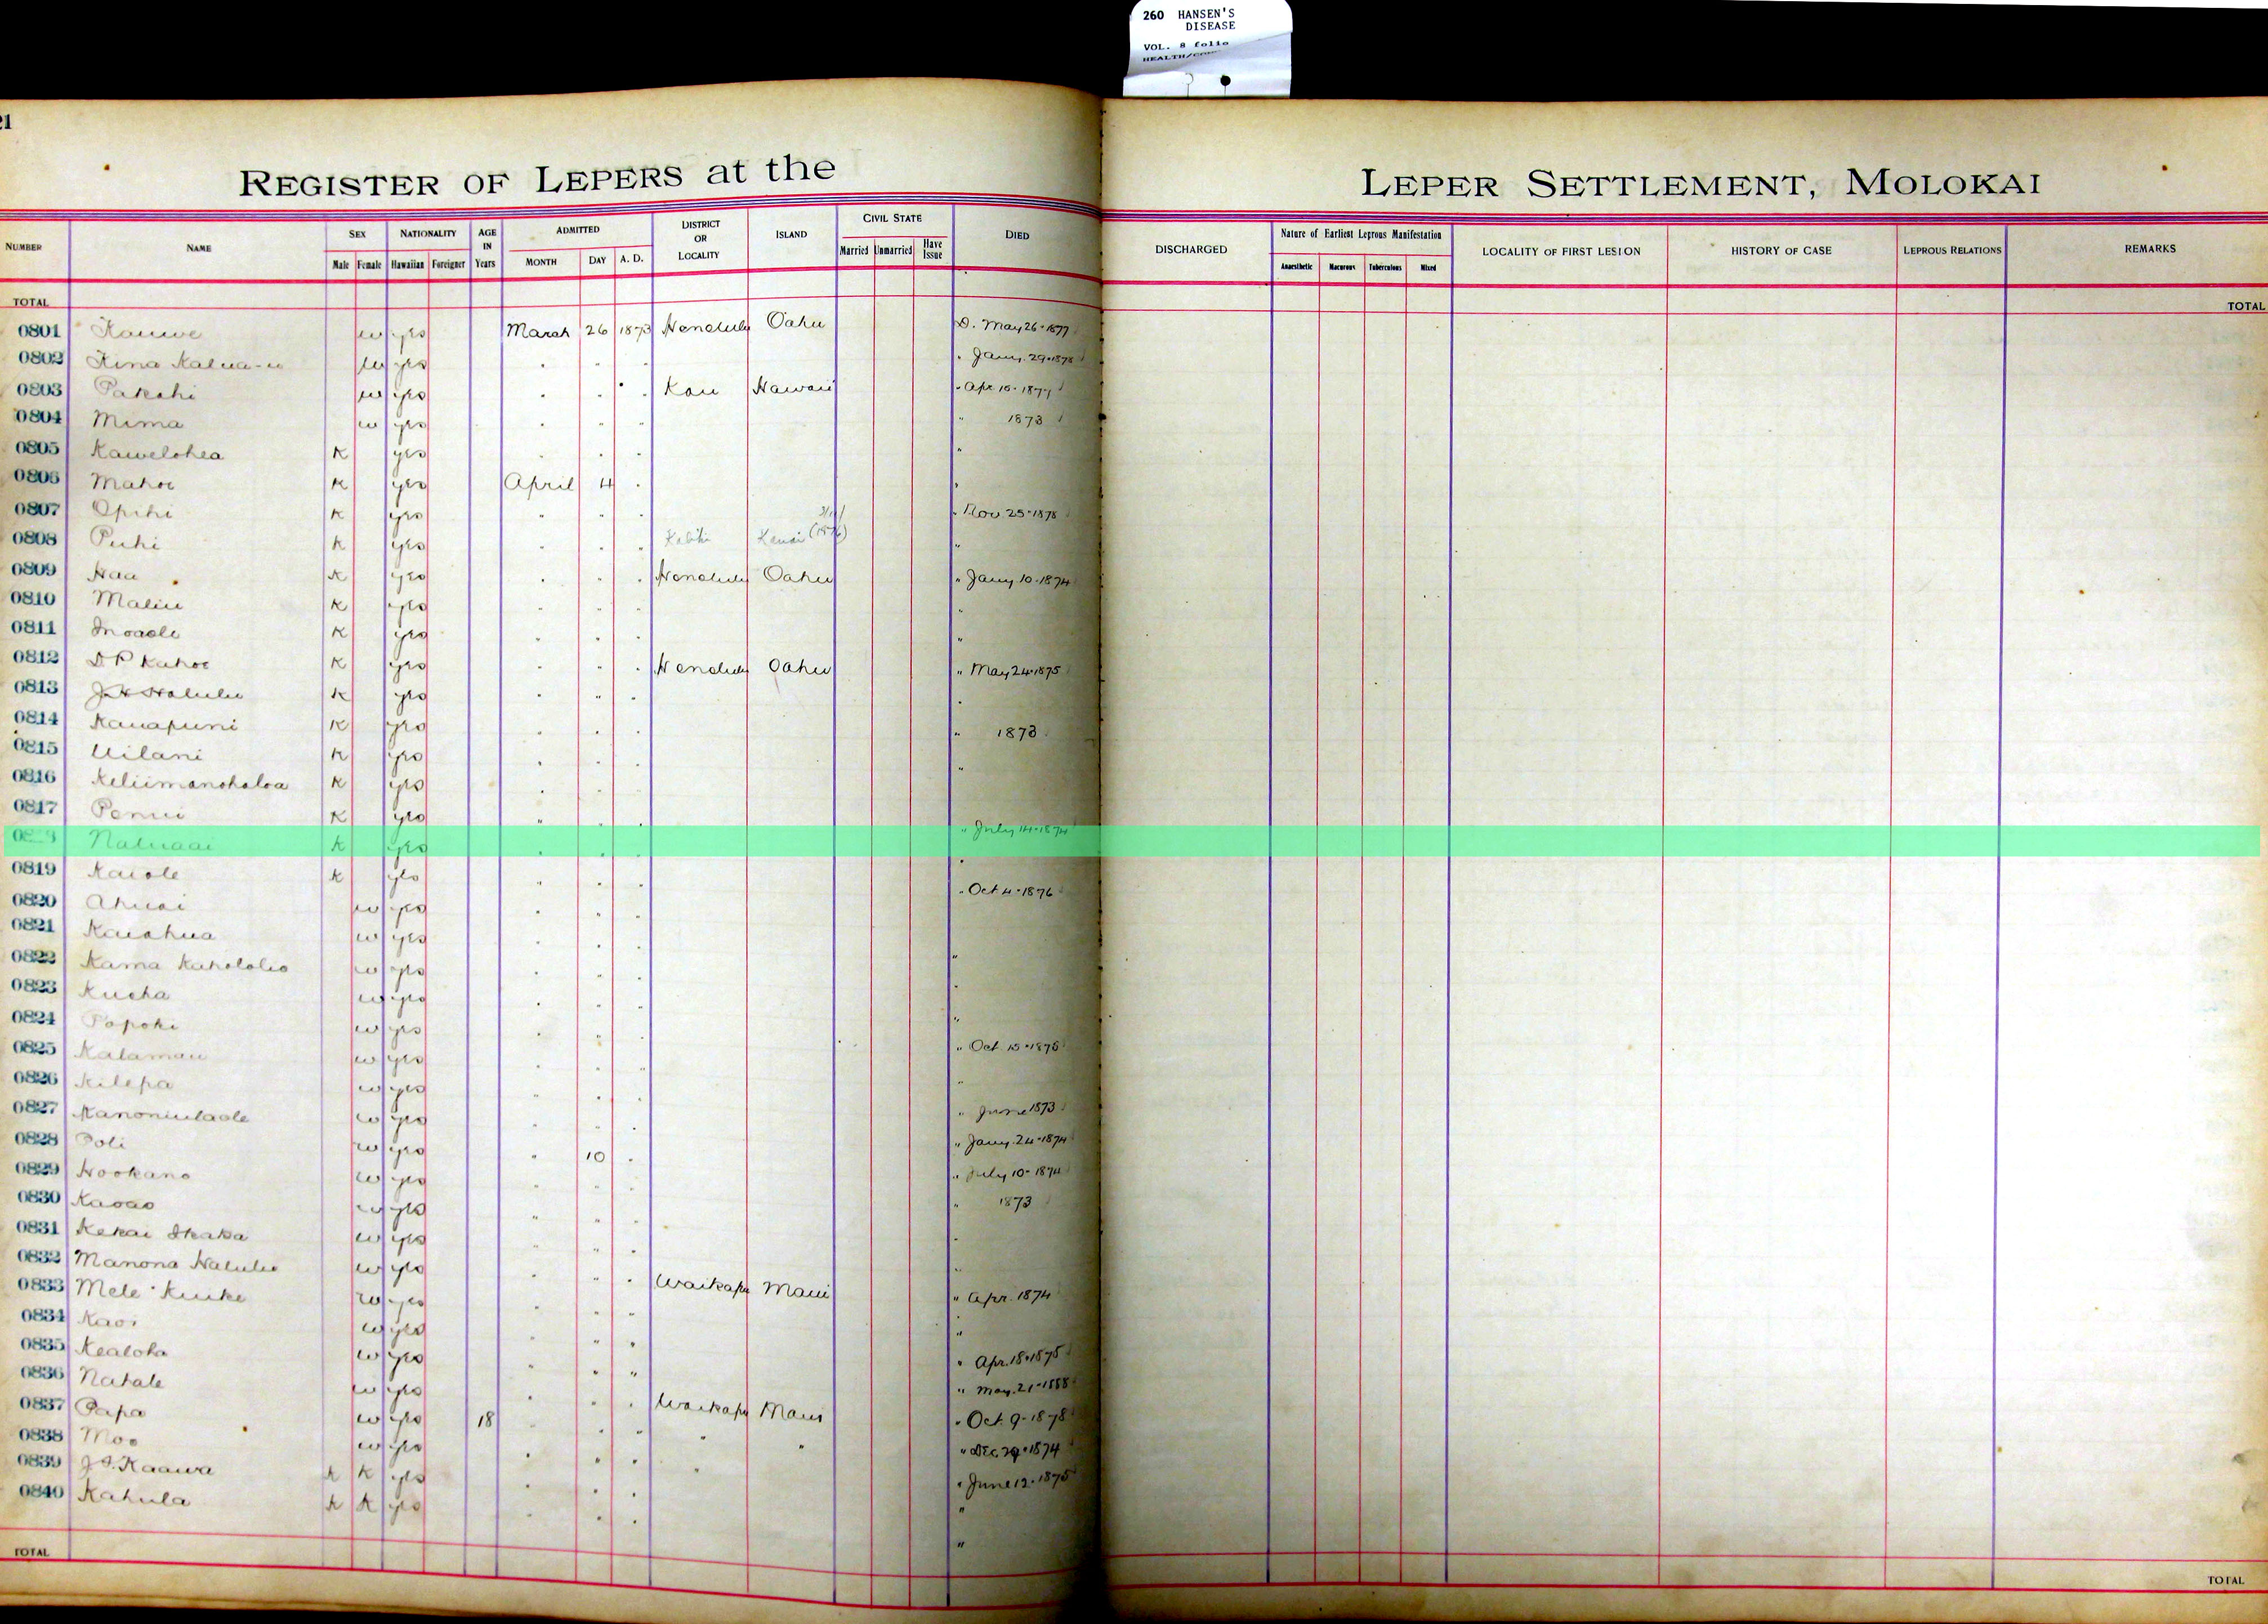 260 HANSEN'S
DISEASE
VOL. 8 folio
21
REGISTER OF LEPERS at the LEPER SETTLEMENT, MOLOKAI
NUMBER NAME SEX Male Female NATIONALITY Hawaiian Foreigner AGE IN Years ADMITTED MONTH DAY A. D. DISTRICT OR LOCALITY ISLAND CIVIL STATE Married Unmarried Have Issue DIED DISCHARGED Nature of Earliest Leprous Manifestation Anaesthetic Macurous Tuberculous Mixed LOCALITY OF FIRST LESION HISTORY OF CASE LEPROUS RELATIONS REMARKS
TOTAL TOTAL
0801 Kauwe w yes March 26 1873 Honolulu Oahu D. May 26-1877
0802 Kina Kalua-u w yes " " " " Jany. 29-1878
0803 Pakahi w yes " " " Kau Hawaii " Apr 10-1877
0804 Mima w yes " " " " 1873
0805 Kawelohea K yes " " " "
0806 Mahoe K yes April 4 " "
0807 Opihi K yes " " " " Nov 25-1878
0808 Puhi K yes " " " Kauai "
0809 Haa K yes " " " Honolulu Oahu " Jany 10-1874
0810 Maliu K yes " " " "
0811 Inoaole K yes " " " "
0812 D P Kahoe K yes " " " Honolulu Oahu " May 24-1875
0813 J H Halulu K yes " " " "
0814 Kauapuni K yes " " " " 1873
0815 Uilani K yes " " " "
0816 Keliimanohaloa K yes " " "
0817 Penui K yes " " " " July 14-1874
Naluaai K yes " " " "
0819 Kaiole K yes " " " " Oct 4-1876
0820 Ahuai w yes " " "
0821 Kaiahua w yes " " " "
0822 Kama Kahololio w yes " " " "
0823 Kueha w yes " " " "
0824 Popoki w yes " " "
0825 Kalamau w yes " " " " Oct. 15-1878
0826 Kilepa w yes " " " "
0827 Kanoniulaole w yes " " " " June 1873
0828 Poli w yes " 10 " " Jany. 24-1874
0829 Hookano w yes " " " " July 10-1874
0830 Kaoao w yes " " " " 1873
0831 Kekai Ikaka w yes " " " "
0832 Manona Halulu w yes " " " Waikapu Maui "
0833 Mele Kuike w yes " " " " Apr. 1874
0834 Kaoi w yes " " " "
0835 Kealoha w yes " " " " Apr. 18-1875
0836 Nahale w yes " " " Waikapu Maui " May. 21-1888
0837 Papa w yes 18 " " " " " " Oct. 9-1878
0838 Moo w yes " " " " " Dec. 29-1874
0839 J S. Kaawa K K yes " " " " June 12-1875
0840 Kahula K K yes " " " "
"
TOTAL TOTAL